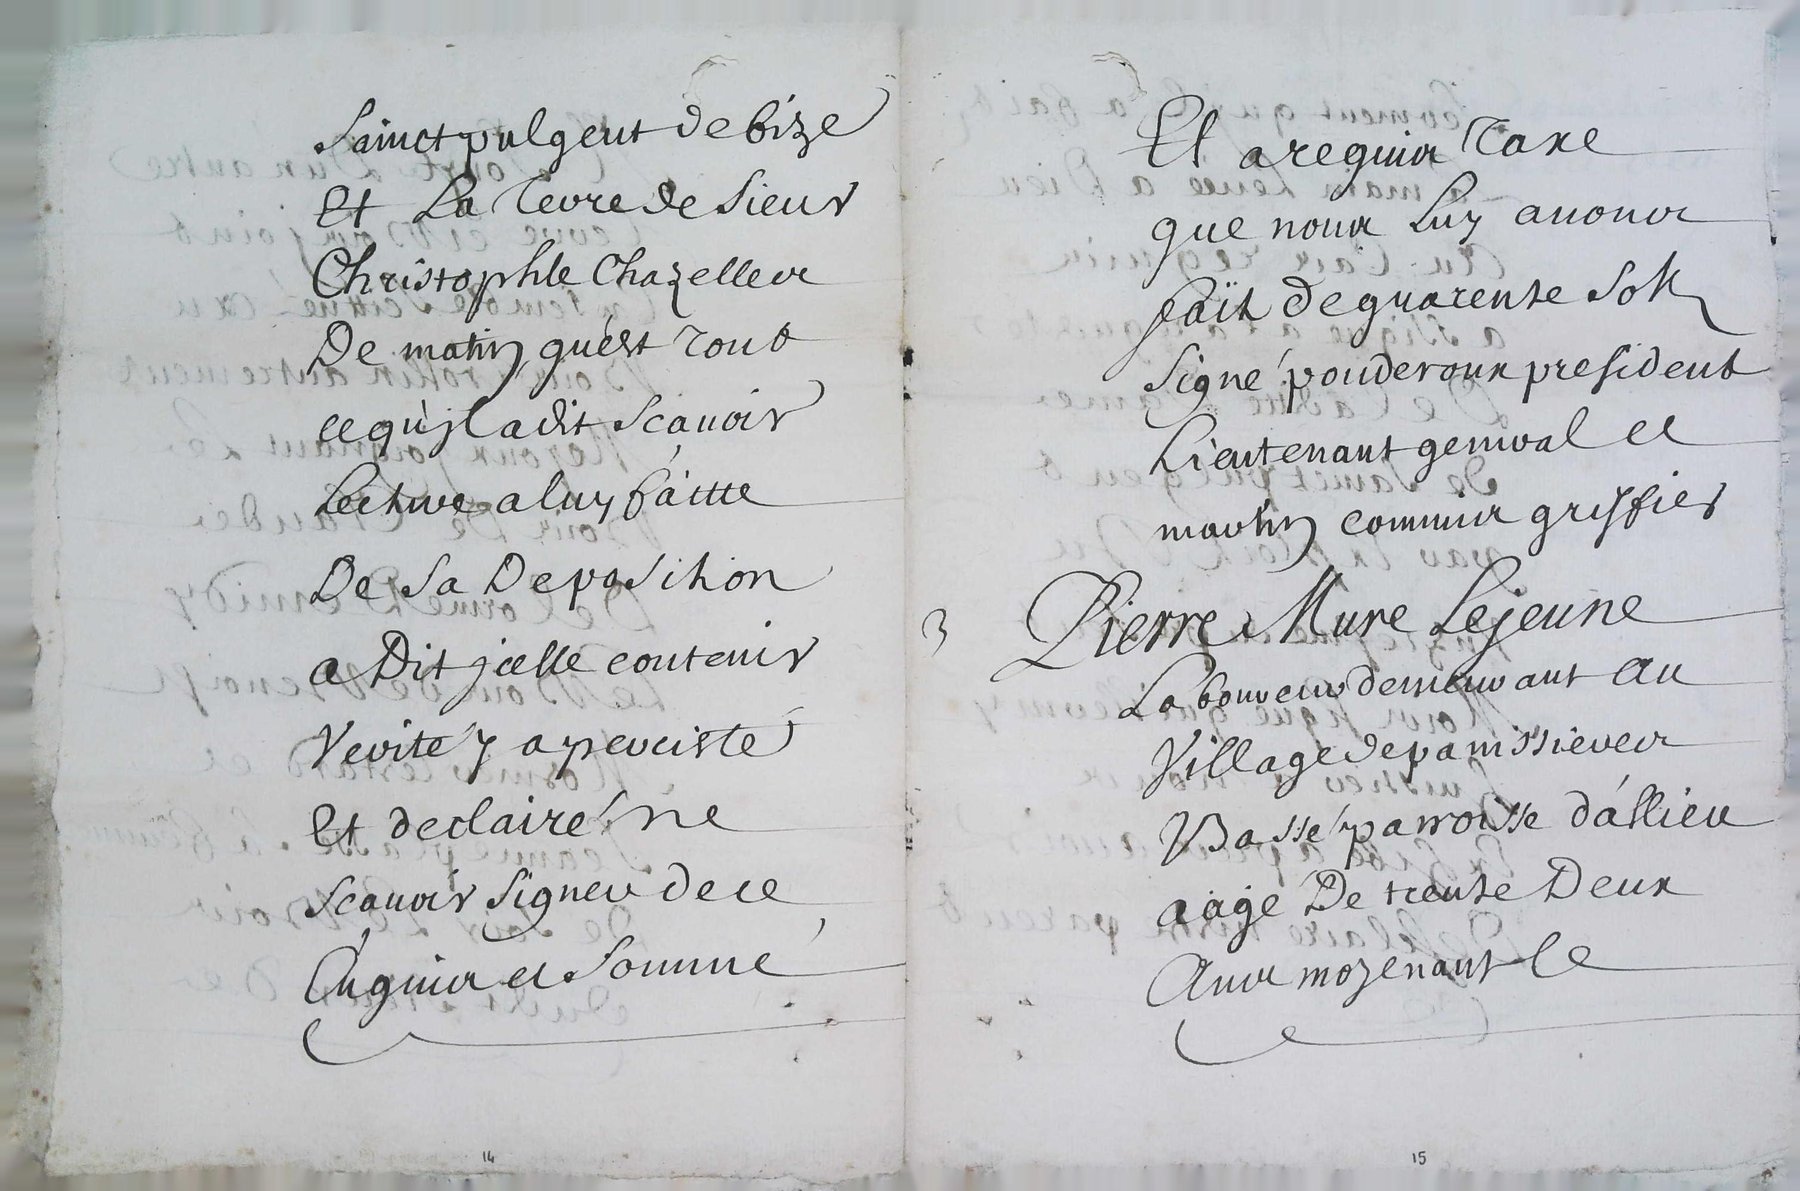 Sainct pulgent de bize
Et La Terre de Sieur
Christophle Chazelles
De matin qu'est tout
ce qu'jl a dit scauoir
Lecture a luy faitte
De Sa Deposition
a Dit jcelle contenir
Verité y a percisté
Et declairé ne
scauoir signer de ce
Enquis et Sommé
14
Et a requis Taxe
que nous Luy auons
faït de quarente Sols
signé pouderoux president
Lieutenant general et
martin commis greffier
3 Pierre Mure Lejeune
Laboureur demeurant au
Village de pamissieres
Basse parroisse d'allieu
aagé De trente Deux
Ans moyenant le
15